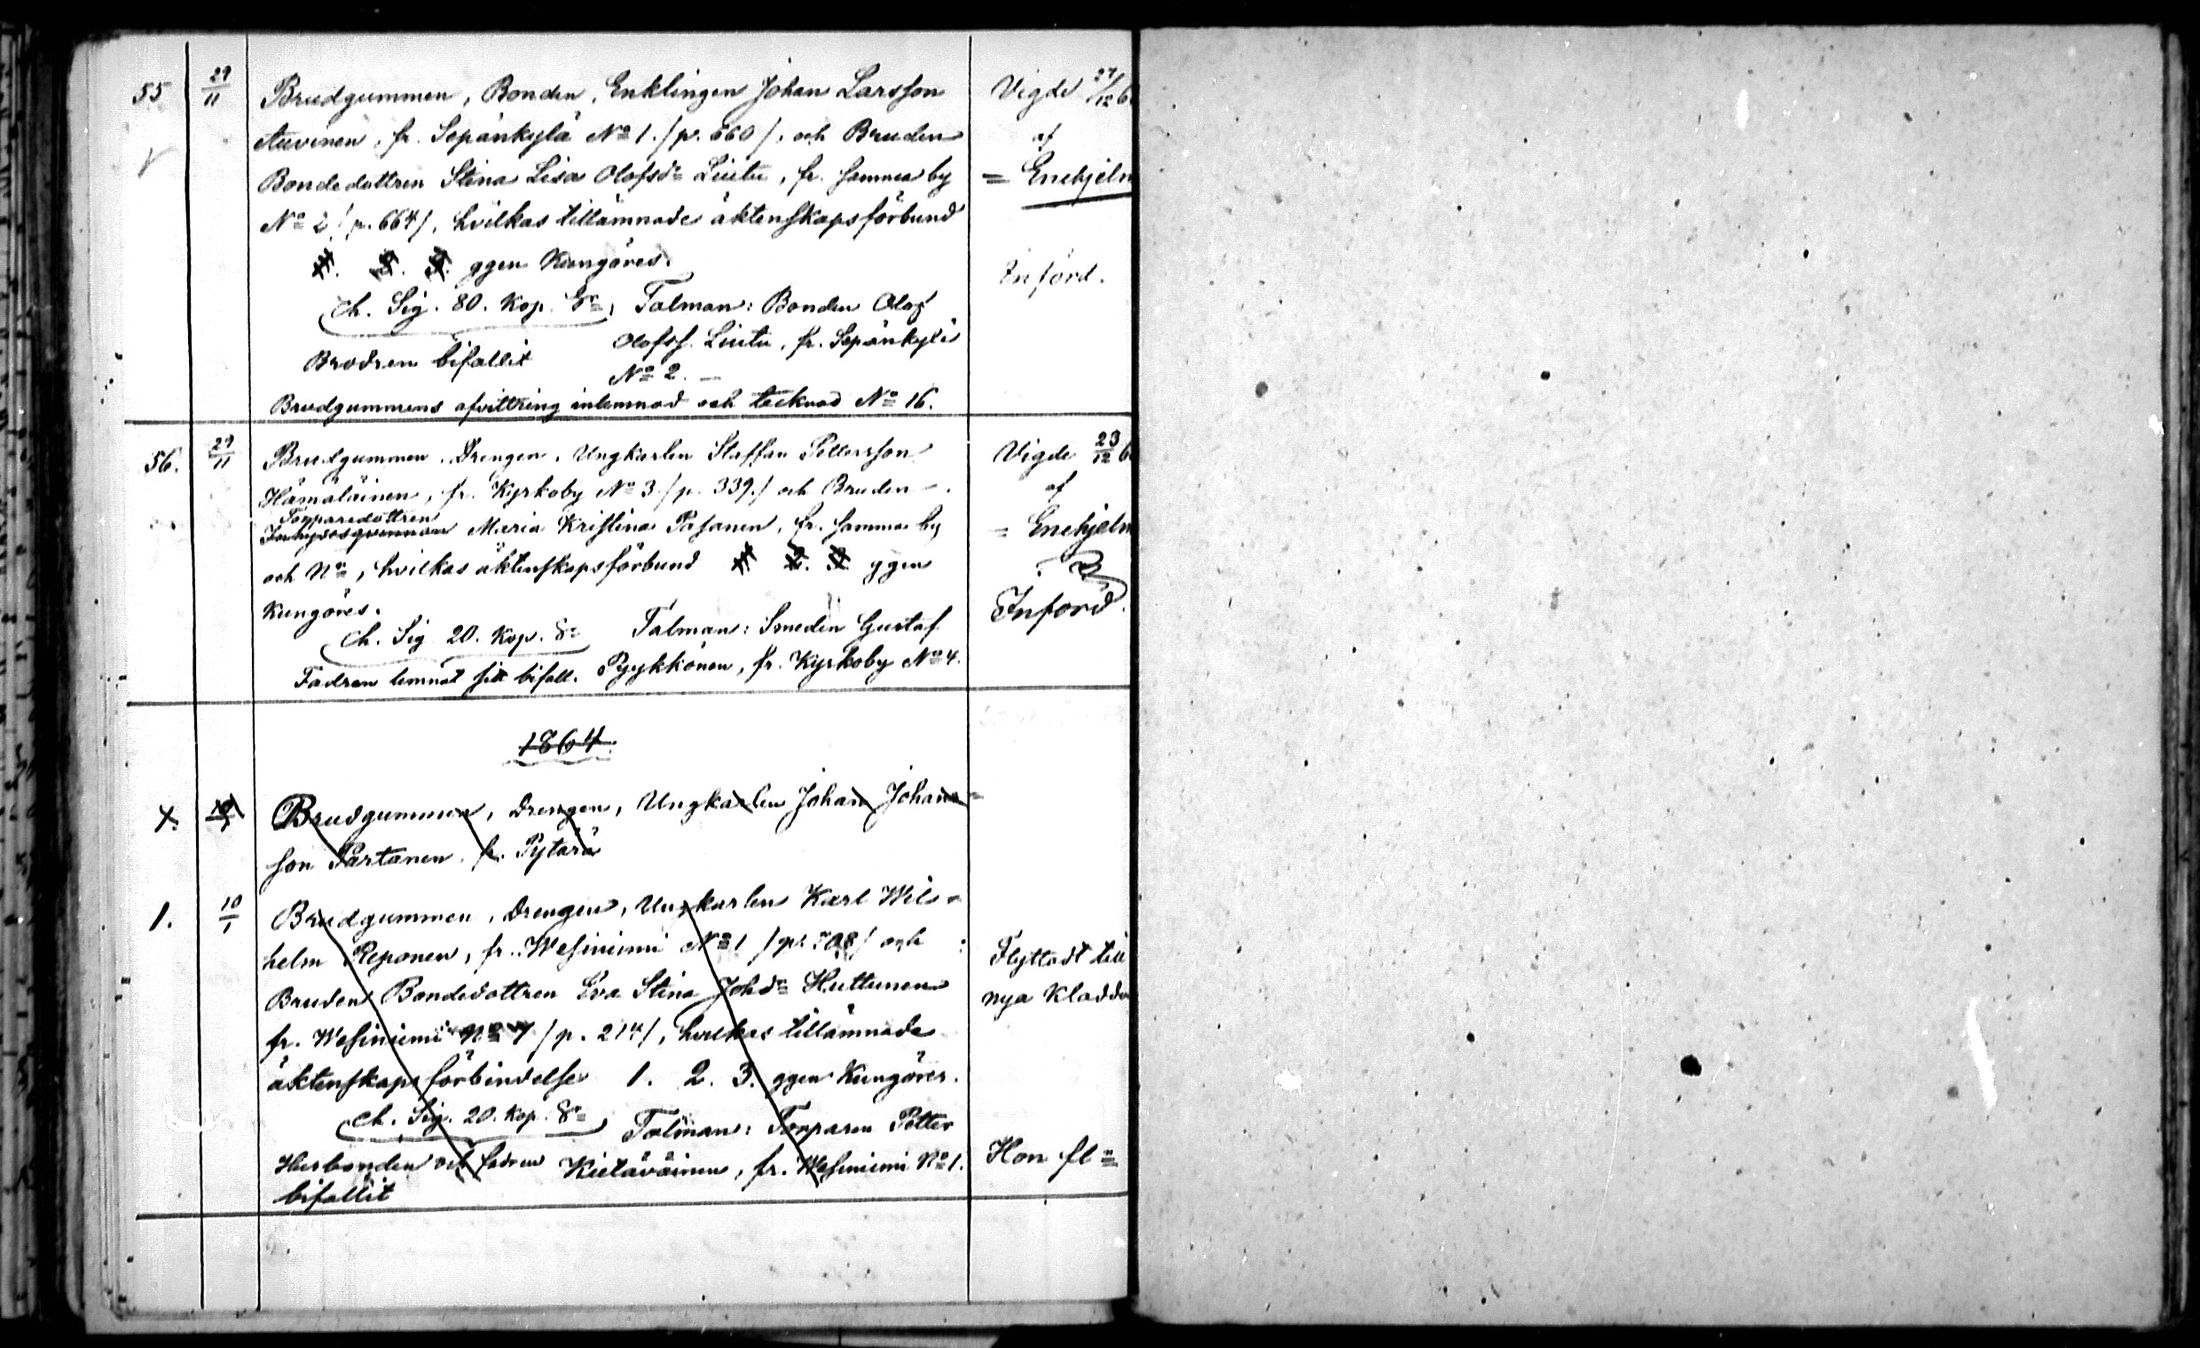 55 29/11 Brudgummen, Bonden, Enklingen Johan Larsson Vigde 27/12 6
Auvinen, fr. Sepänkylä No 1. /p. 660/, och Bruden af
Bondedottren Stina Lisa Olofsdr Liutu, fr. samma by = Enehjelm
No 2 /p. 664/, hvilkas tillämnade äktenskapsförbund
1. 2. 3. ggen Kungöres. Införd.
Ch. Sig. 80. Kop. Sr, Talman: Bonden Olof
Olofss. Liutu, fr. Sepänkylä
Brodren bifallit
No 2. —
Brudgummens afvittring inlemnad och tecknad No 16.
56. 29/11 Brudgummen, Drengen, Ungkarlen Staffan Pettersson Vigde 23/12 6
Hämäläinen, fr. Kyrkoby No 3 /p. 339./ och Bruden — af
Torparedottren
Inhysesqvinnan Maria Kristina Pasanen, fr. samma by = Enehjelm
och No, hvilkas äktenskapsförbund 1. 2. 3. ggen
Kungöres. Införd.
Ch. Sig 20. Kop. Sr Talman: Smeden Gustaf
Fadren lemnat sitt bifall. Pyykkönen, fr. Kyrkoby No 4.
1864.
Brudgummen, Drengen, Ungkarlen Johan Johans=
son Partanen, fr. Pytärä
1. 10/1 Brudgummen, Drengen, Ungkarlen Karl Wil=
helm Reponen, fr. Wesiniemi No 1 /p. 708/ och Flyttadt till
Bruden Bondedottren Eva Stina Johdr Huttunen nya Kladde
fr. Wesiniemi No 7 /p. 214/, hvilkas tillämnade
äktenskapsförbindelse 1. 2. 3. ggen Kungöres.
Ch. Sig. 20. Kop. Sr Talman: Torparen Petter
Husbonden och fadren Kietäväinen, fr. Wesiniemi No 1. Hon fl=
bifallit